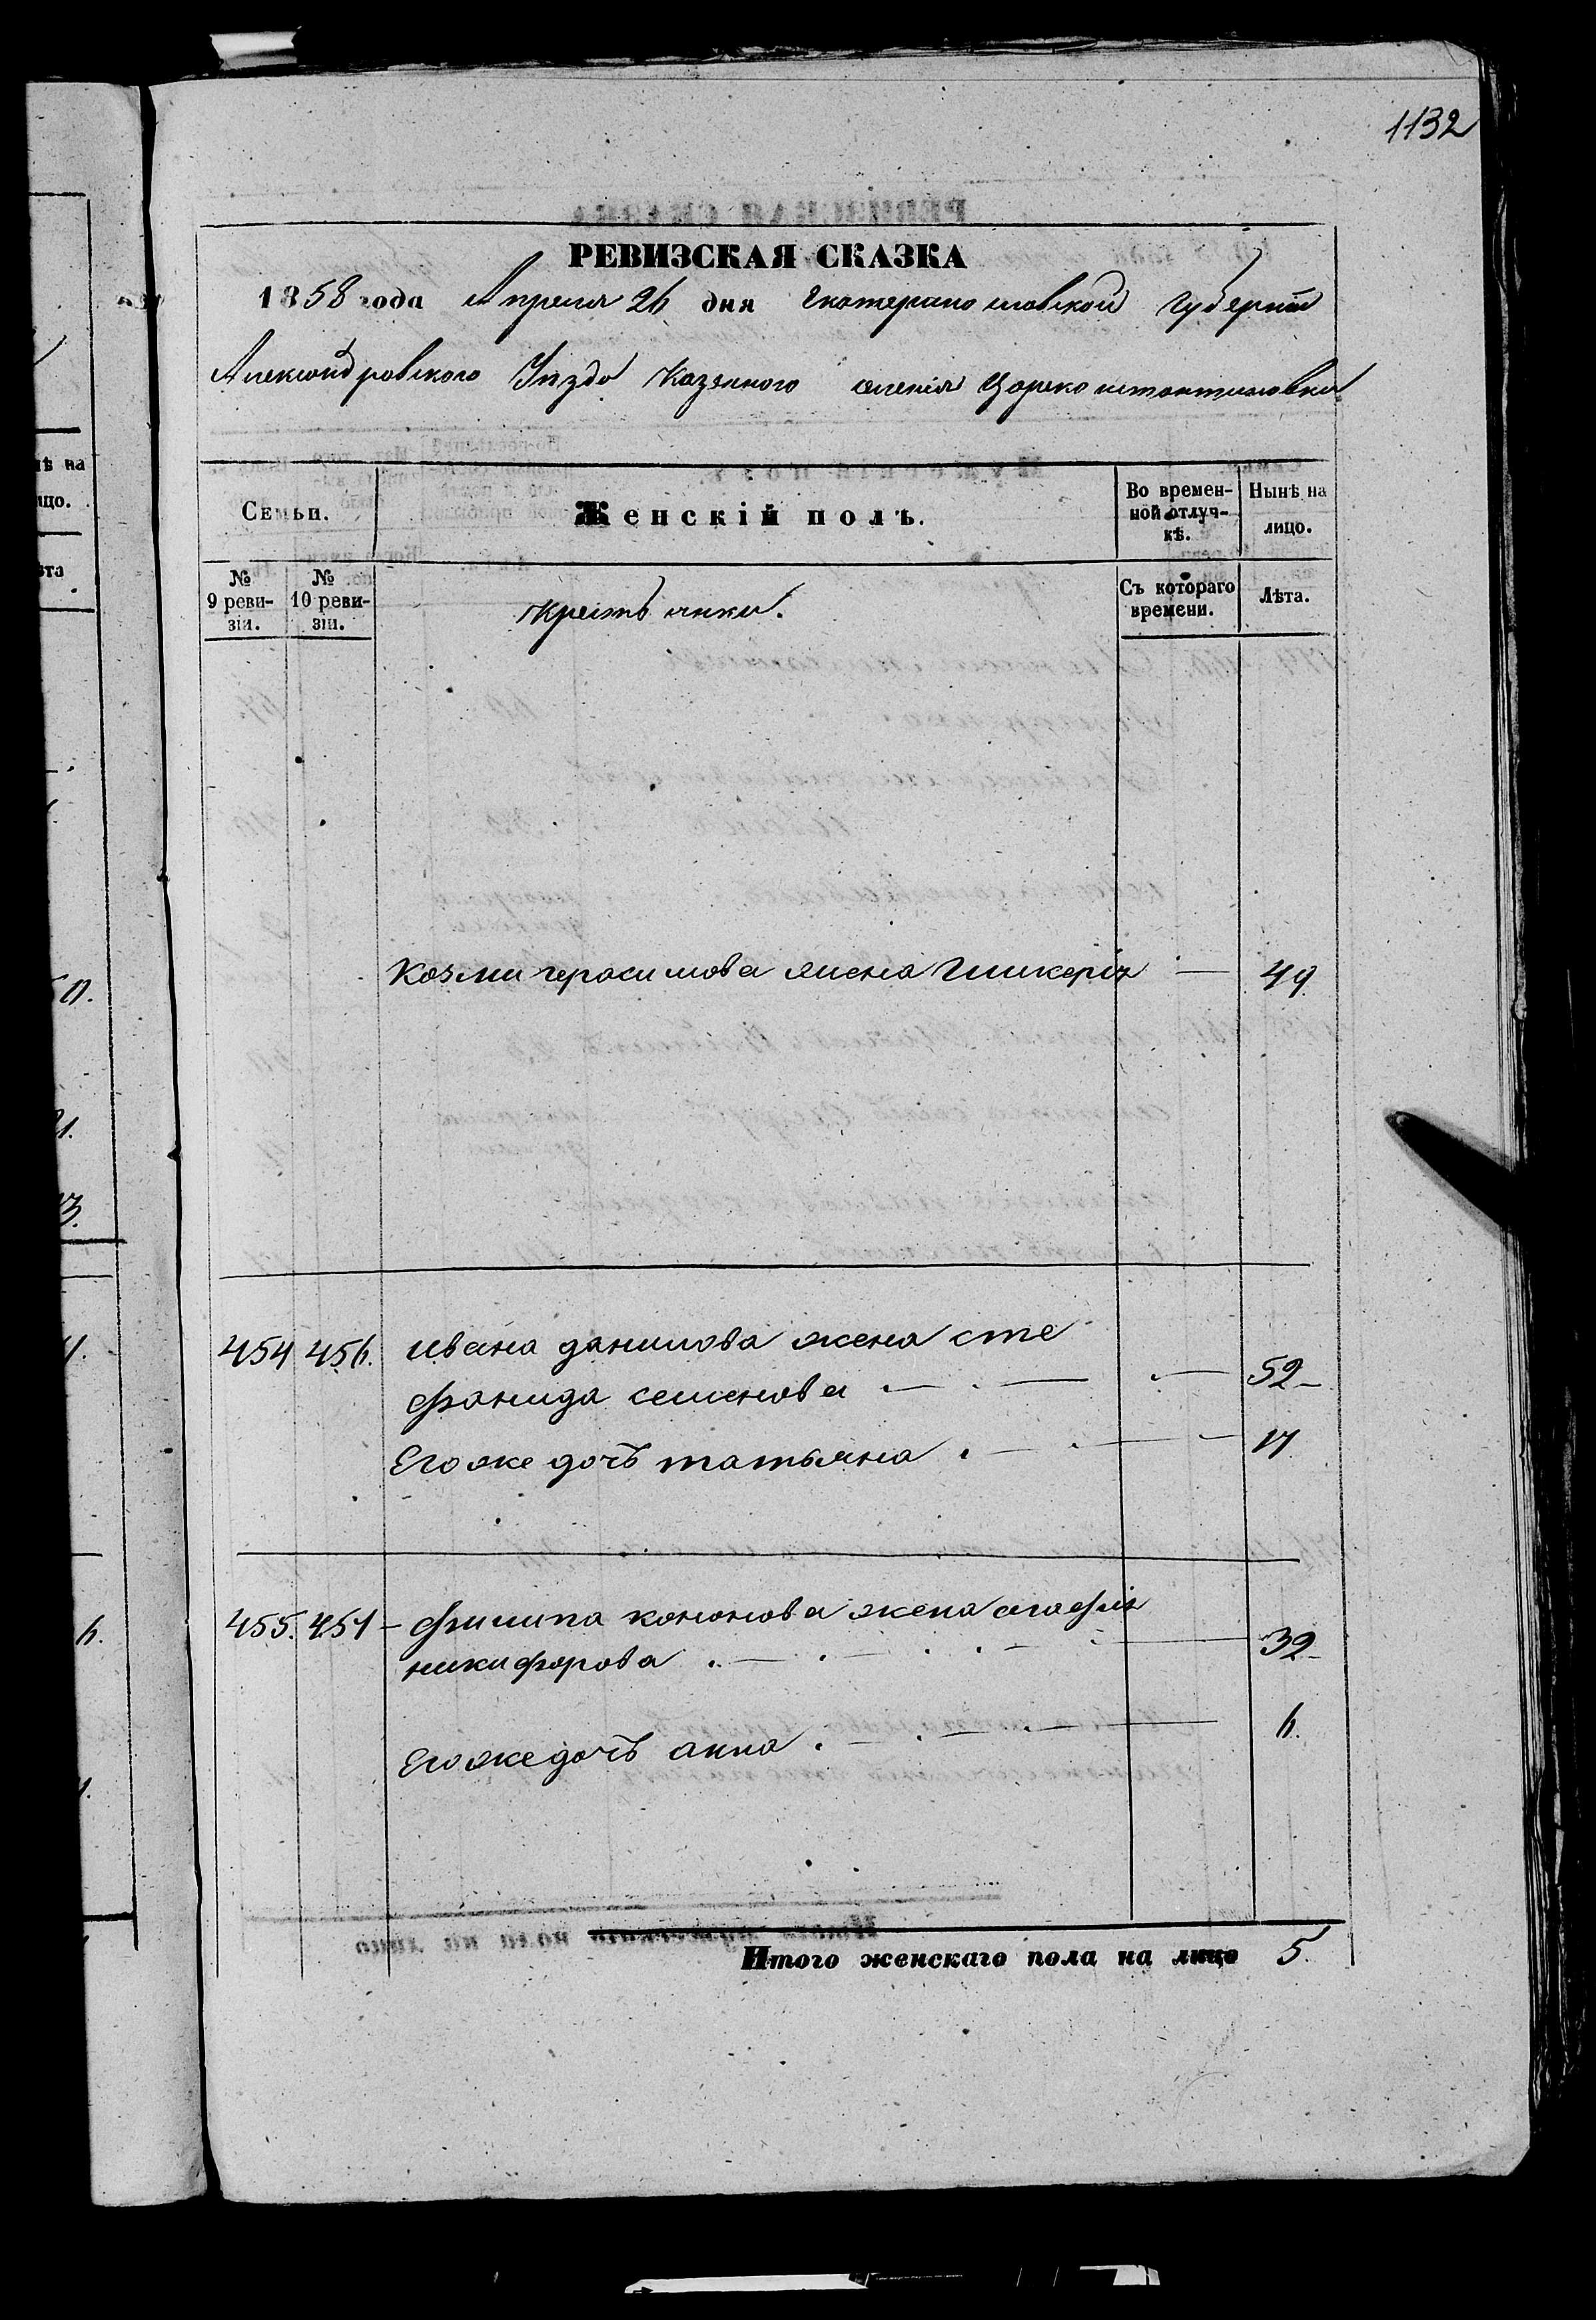 1132
РЕВИЗСКАЯ СКАЗКА
1858 года Апреля 26 дня Екатеринославской Губерніи
Александровского Уѣзда Казенного селенія Цареконстантиновки
Семьи.
Женскій полъ.
Во времен-
ной отлуч-
кѣ.
Нынѣ на
лицо.
№
9 реви-
зіи.
№
10 реви-
зіи.
Съ котораго
времени.
Лѣта.
крестьянки.
Козми герасимова жена Гликерія — 49
454 456. ивана данилова жена сте
фанида семенова — 52
Его же дочь татьяна . — 17
455. 457 - филипа кононова жена агафія
никифорова . — 32
Его же дочь анна . — 6.
Итого женскаго пола на лицо 5.